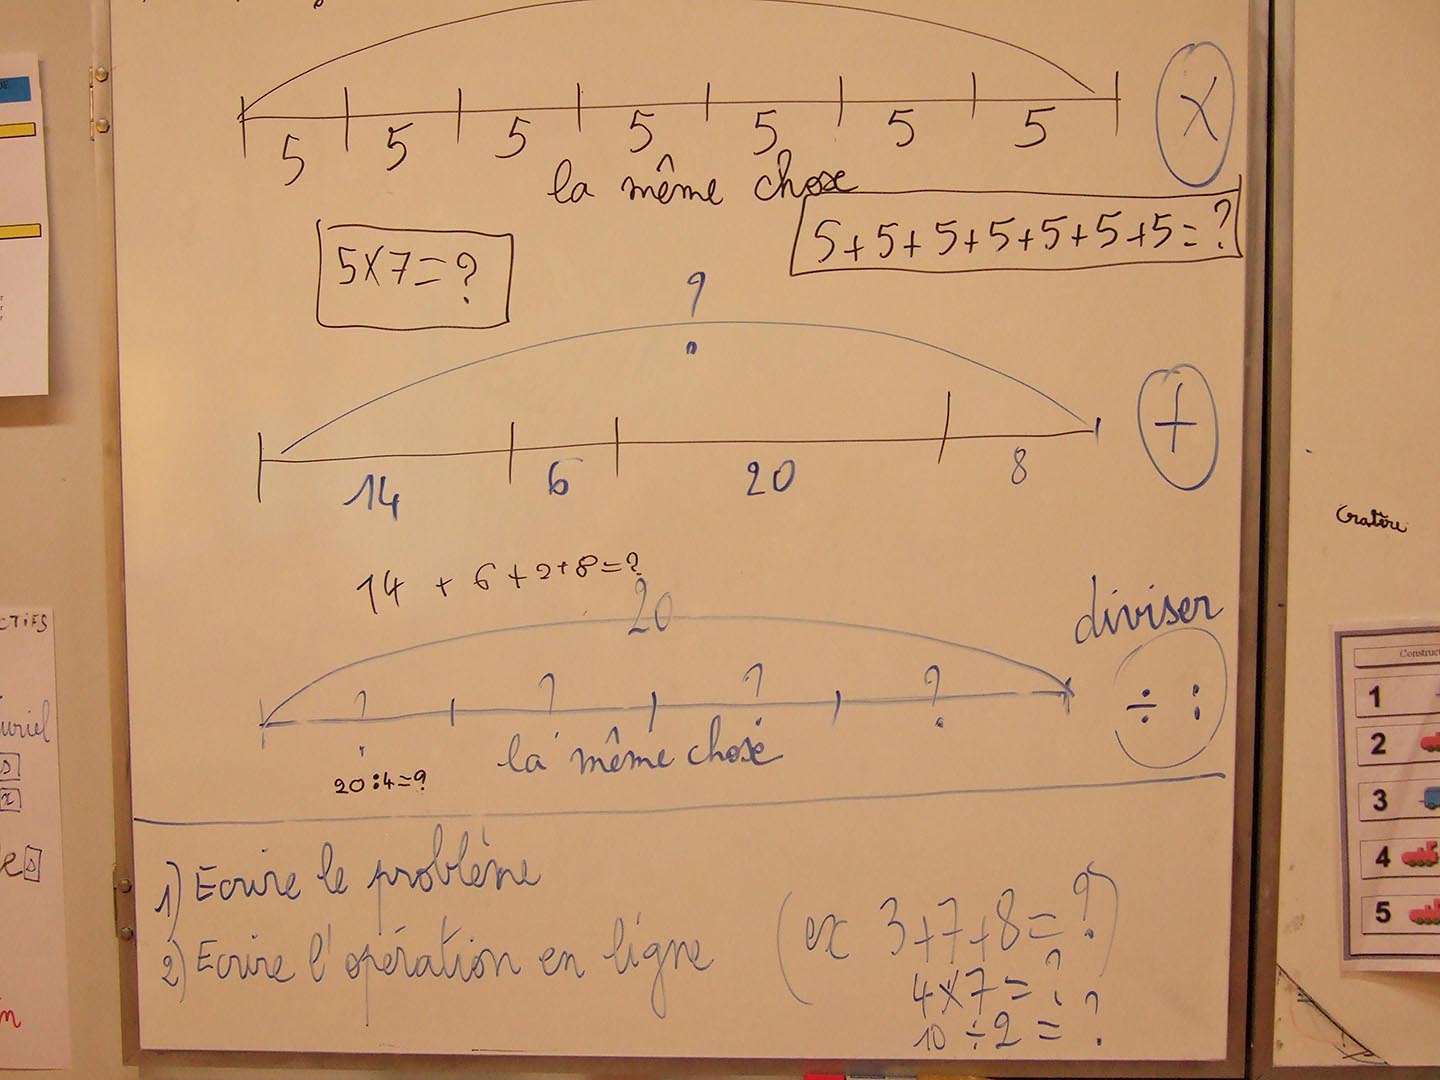 5 5 5 5 5 5 5
la même chose
×
5+5+5+5+5+5+5=?
5×7=?
?
14 6 20 8
+
14 + 6 + 2+8=?
20
diviser
? ? ? ?
÷ :
la même chose
20:4=?
1) Ecrire le problème
2) Ecrire l'opération en ligne (ex 3+7+8=?)
4×7=?
10÷2=?
Cratère
1
2
3
4
5